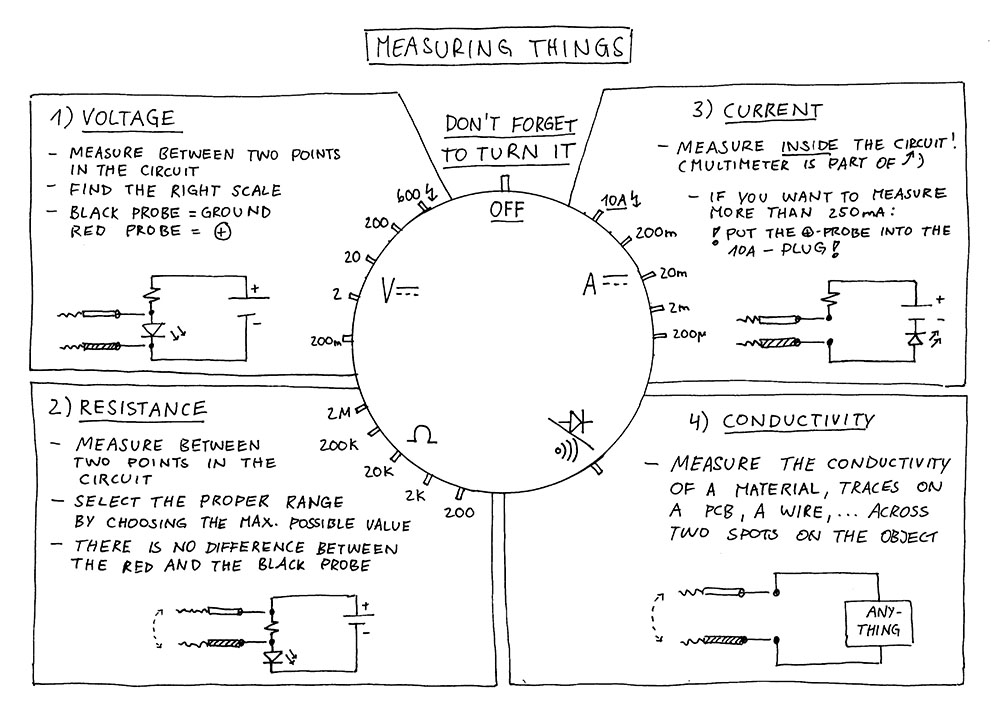 MEASURING THINGS
1) VOLTAGE
- MEASURE BETWEEN TWO POINTS
IN THE CIRCUIT
- FIND THE RIGHT SCALE
- BLACK PROBE = GROUND
RED PROBE = ⊕
+
-
DON'T FORGET
TO TURN IT
OFF
3) CURRENT
- MEASURE INSIDE THE CIRCUIT!
(MULTIMETER IS PART OF ↗)
- IF YOU WANT TO MEASURE
MORE THAN 250mA:
! PUT THE ⊕-PROBE INTO THE
10A - PLUG!
+
-
600
200
20
2
200m
V
10A
200m
20m
2m
200µ
A
2M
200K
20K
2K
200
Ω
2) RESISTANCE
- MEASURE BETWEEN
TWO POINTS IN THE
CIRCUIT
- SELECT THE PROPER RANGE
BY CHOOSING THE MAX. POSSIBLE VALUE
- THERE IS NO DIFFERENCE BETWEEN
THE RED AND THE BLACK PROBE
+
-
4) CONDUCTIVITY
- MEASURE THE CONDUCTIVITY
OF A MATERIAL, TRACES ON
A PCB, A WIRE, ... ACROSS
TWO SPOTS ON THE OBJECT
ANY-
THING